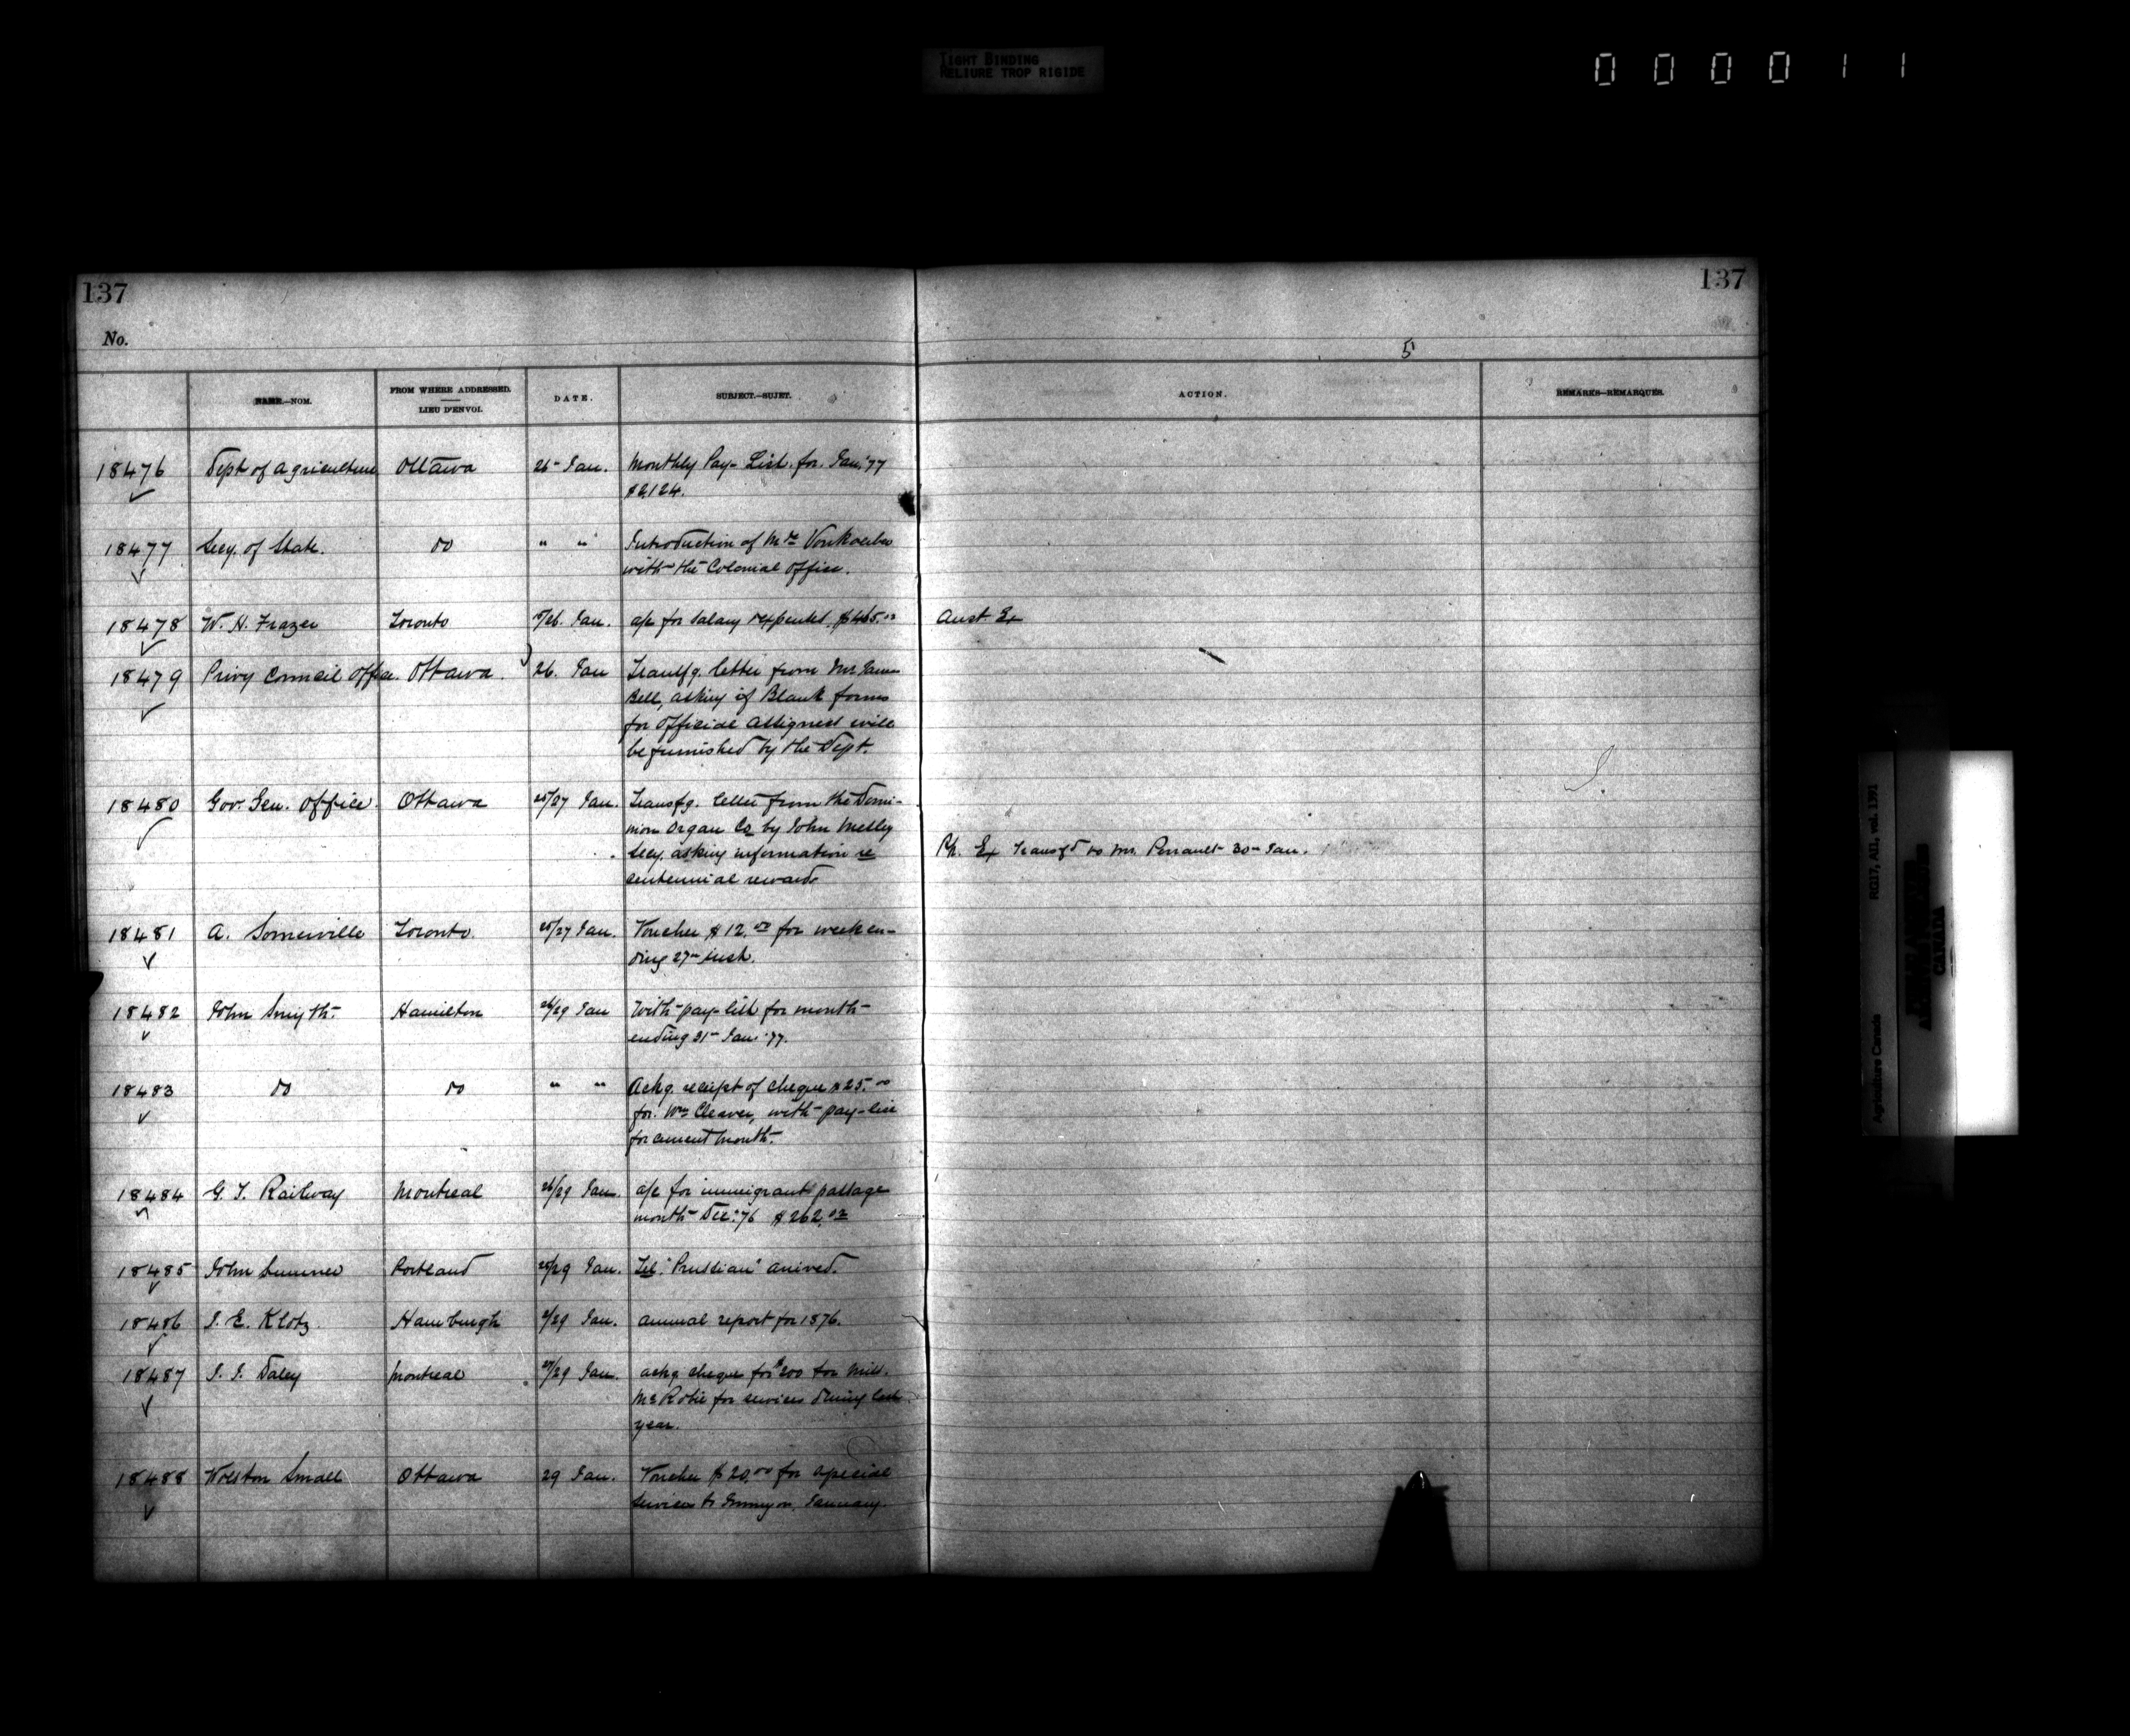 TIGHT BINDING
RELIURE TROP RIGIDE
000011
137
137
No.
5
NAME.—NOM.
FROM WHERE ADDRESSED.
LIEU D'ENVOI.
DATE.
SUBJECT.—SUJET.
ACTION.
REMARKS—REMARQUES.
18476 Dept of Agriculture Ottawa 26 Jan. Monthly Pay-List. for. Jan. '77
$2,124.
18477 Secy. of State. do " " Introduction of Mde Vonkoerber
with the Colonial Office.
18478 W. H. Frazer Toronto 26. Jan. a/c for salary $465.00 Aust Ex
18479 Privy Council Office. Ottawa. 26. Jan Transfg. letter from Mr James
Bell, asking if Blank forms
for Official Assignees will
be furnished by the Dept.
18480 Gov. Gen. Office. Ottawa 25/27 Jan. Transfg. letter from the Domi-
nion Organ Co by John
Secy. asking information re Ph. Ex Transfd to Mr. Perrault 30 Jan.
centennial rewards
18481 A. Somerville Toronto. 25/27 Jan. Voucher $12.00 for week en-
ding 27 inst.
18482 John Smyth Hamilton 26/29 Jan With pay-list for month
ending 31 Jan. '77.
18483 do do " " Ackg. receipt of cheque $25.00
for. Wm Cleaver, with pay-list
for current month.
18484 G. T. Railway Montreal 26/29 Jan. a/c for immigrant passage
month Dec. '76 $262.02
18485 John Sumner Portland 29 Jan. Tel. "Prussian" arrived.
18486 J. E. Klotz. Hamburgh 29 Jan. annual report for 1876.
18487 J. J. Daley Montreal 27/29 Jan. ackg. cheque for $200 for Miss.
McRobie for services during last
year.
18488 Wolston Small Ottawa 29 Jan. Voucher $20.00 for special
services January.
Agriculture Canada
RG17, AII, vol. 1391